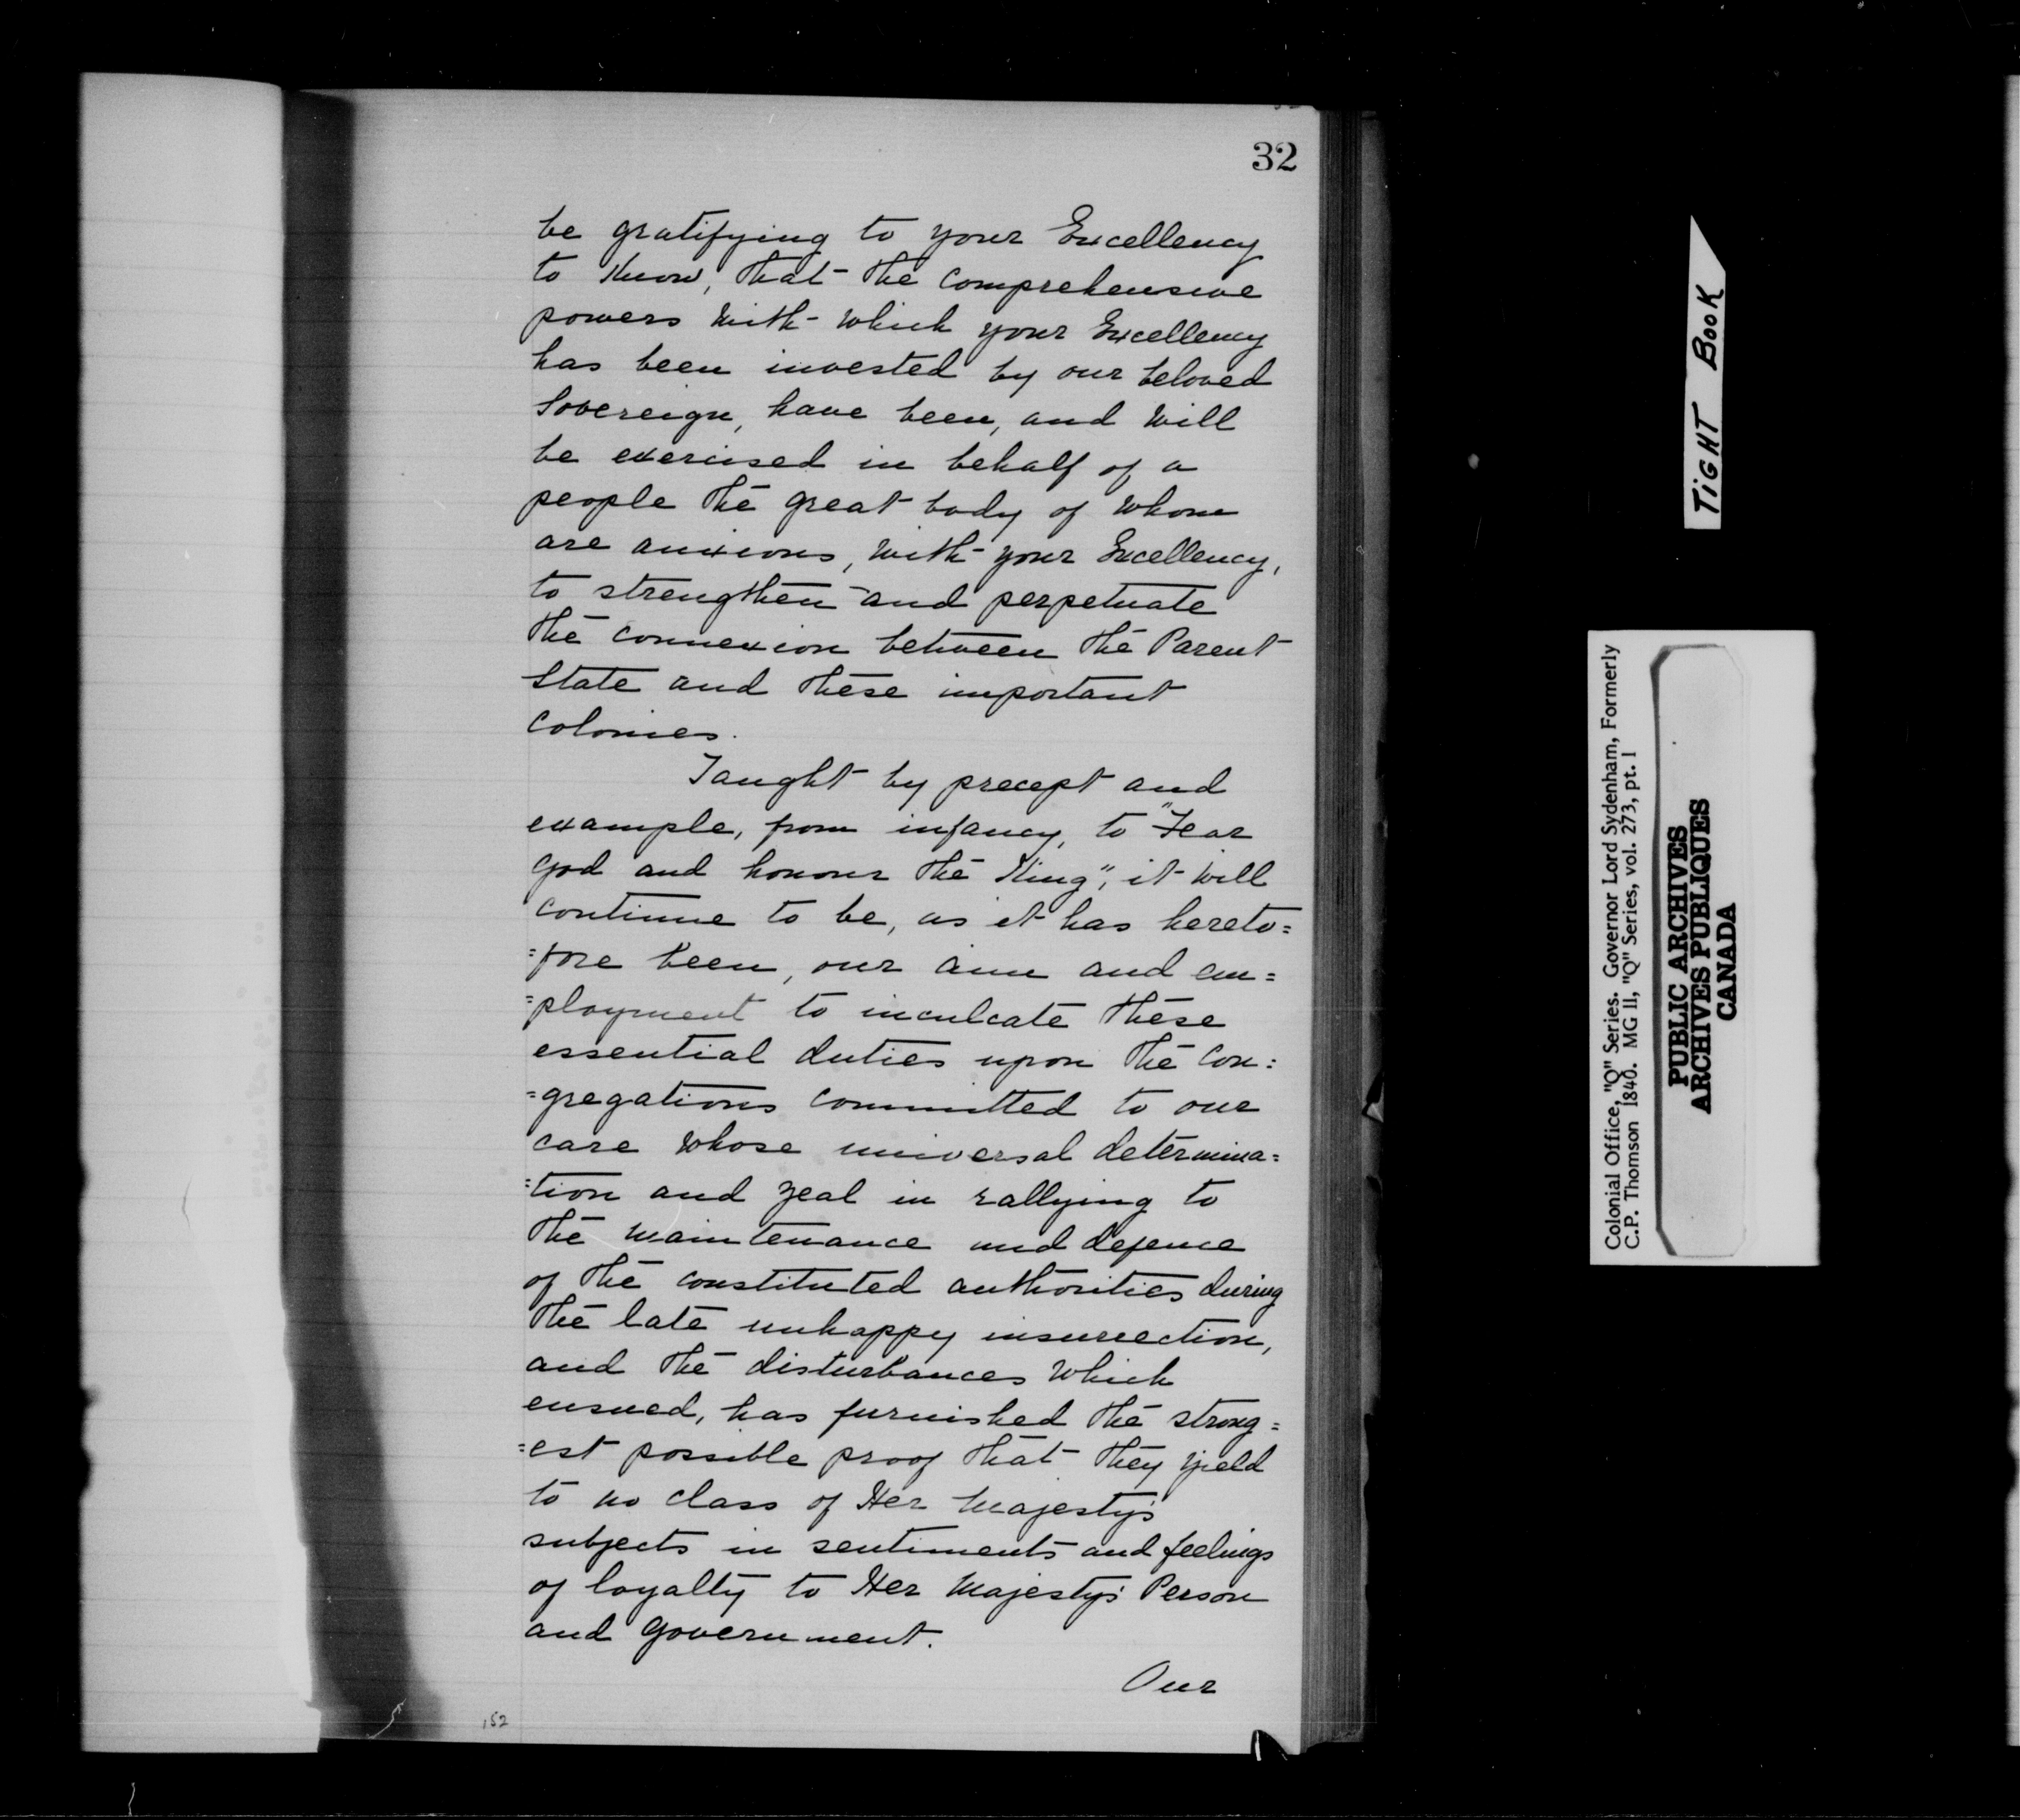 32
be gratifying to your Excellency
to know, that the comprehensive
powers with which your Excellency
has been invested by our beloved
Sovereign, have been, and will
be exercised in behalf of a
people the great body of whom
are anxious, with your Excellency,
to strengthen and perpetuate
the connexion between the Parent
State and these important
Colonies.
Taught by precept and
example, from infancy, to "Fear
God and honour the King", it will
continue to be, as it has hereto=
=fore been, our aim and em=
=ployment to inculcate these
essential duties upon the Con=
=gregations committed to our
care whose universal determina=
=tion and zeal in rallying to
the maintenance and defence
of the constituted authorities during
the late unhappy insurrection,
and the disturbances which
ensued, has furnished the strong=
=est possible proof that they yield
to no class of Her Majesty's
subjects in sentiments and feelings
of loyalty to Her Majesty's Person
and Government.
Our
152
TIGHT BOOK
Colonial Office, "Q" Series. Governor Lord Sydenham, Formerly
C.P. Thomson 1840. MG 11, "Q" Series, vol. 273, pt. 1
PUBLIC ARCHIVES
ARCHIVES PUBLIQUES
CANADA